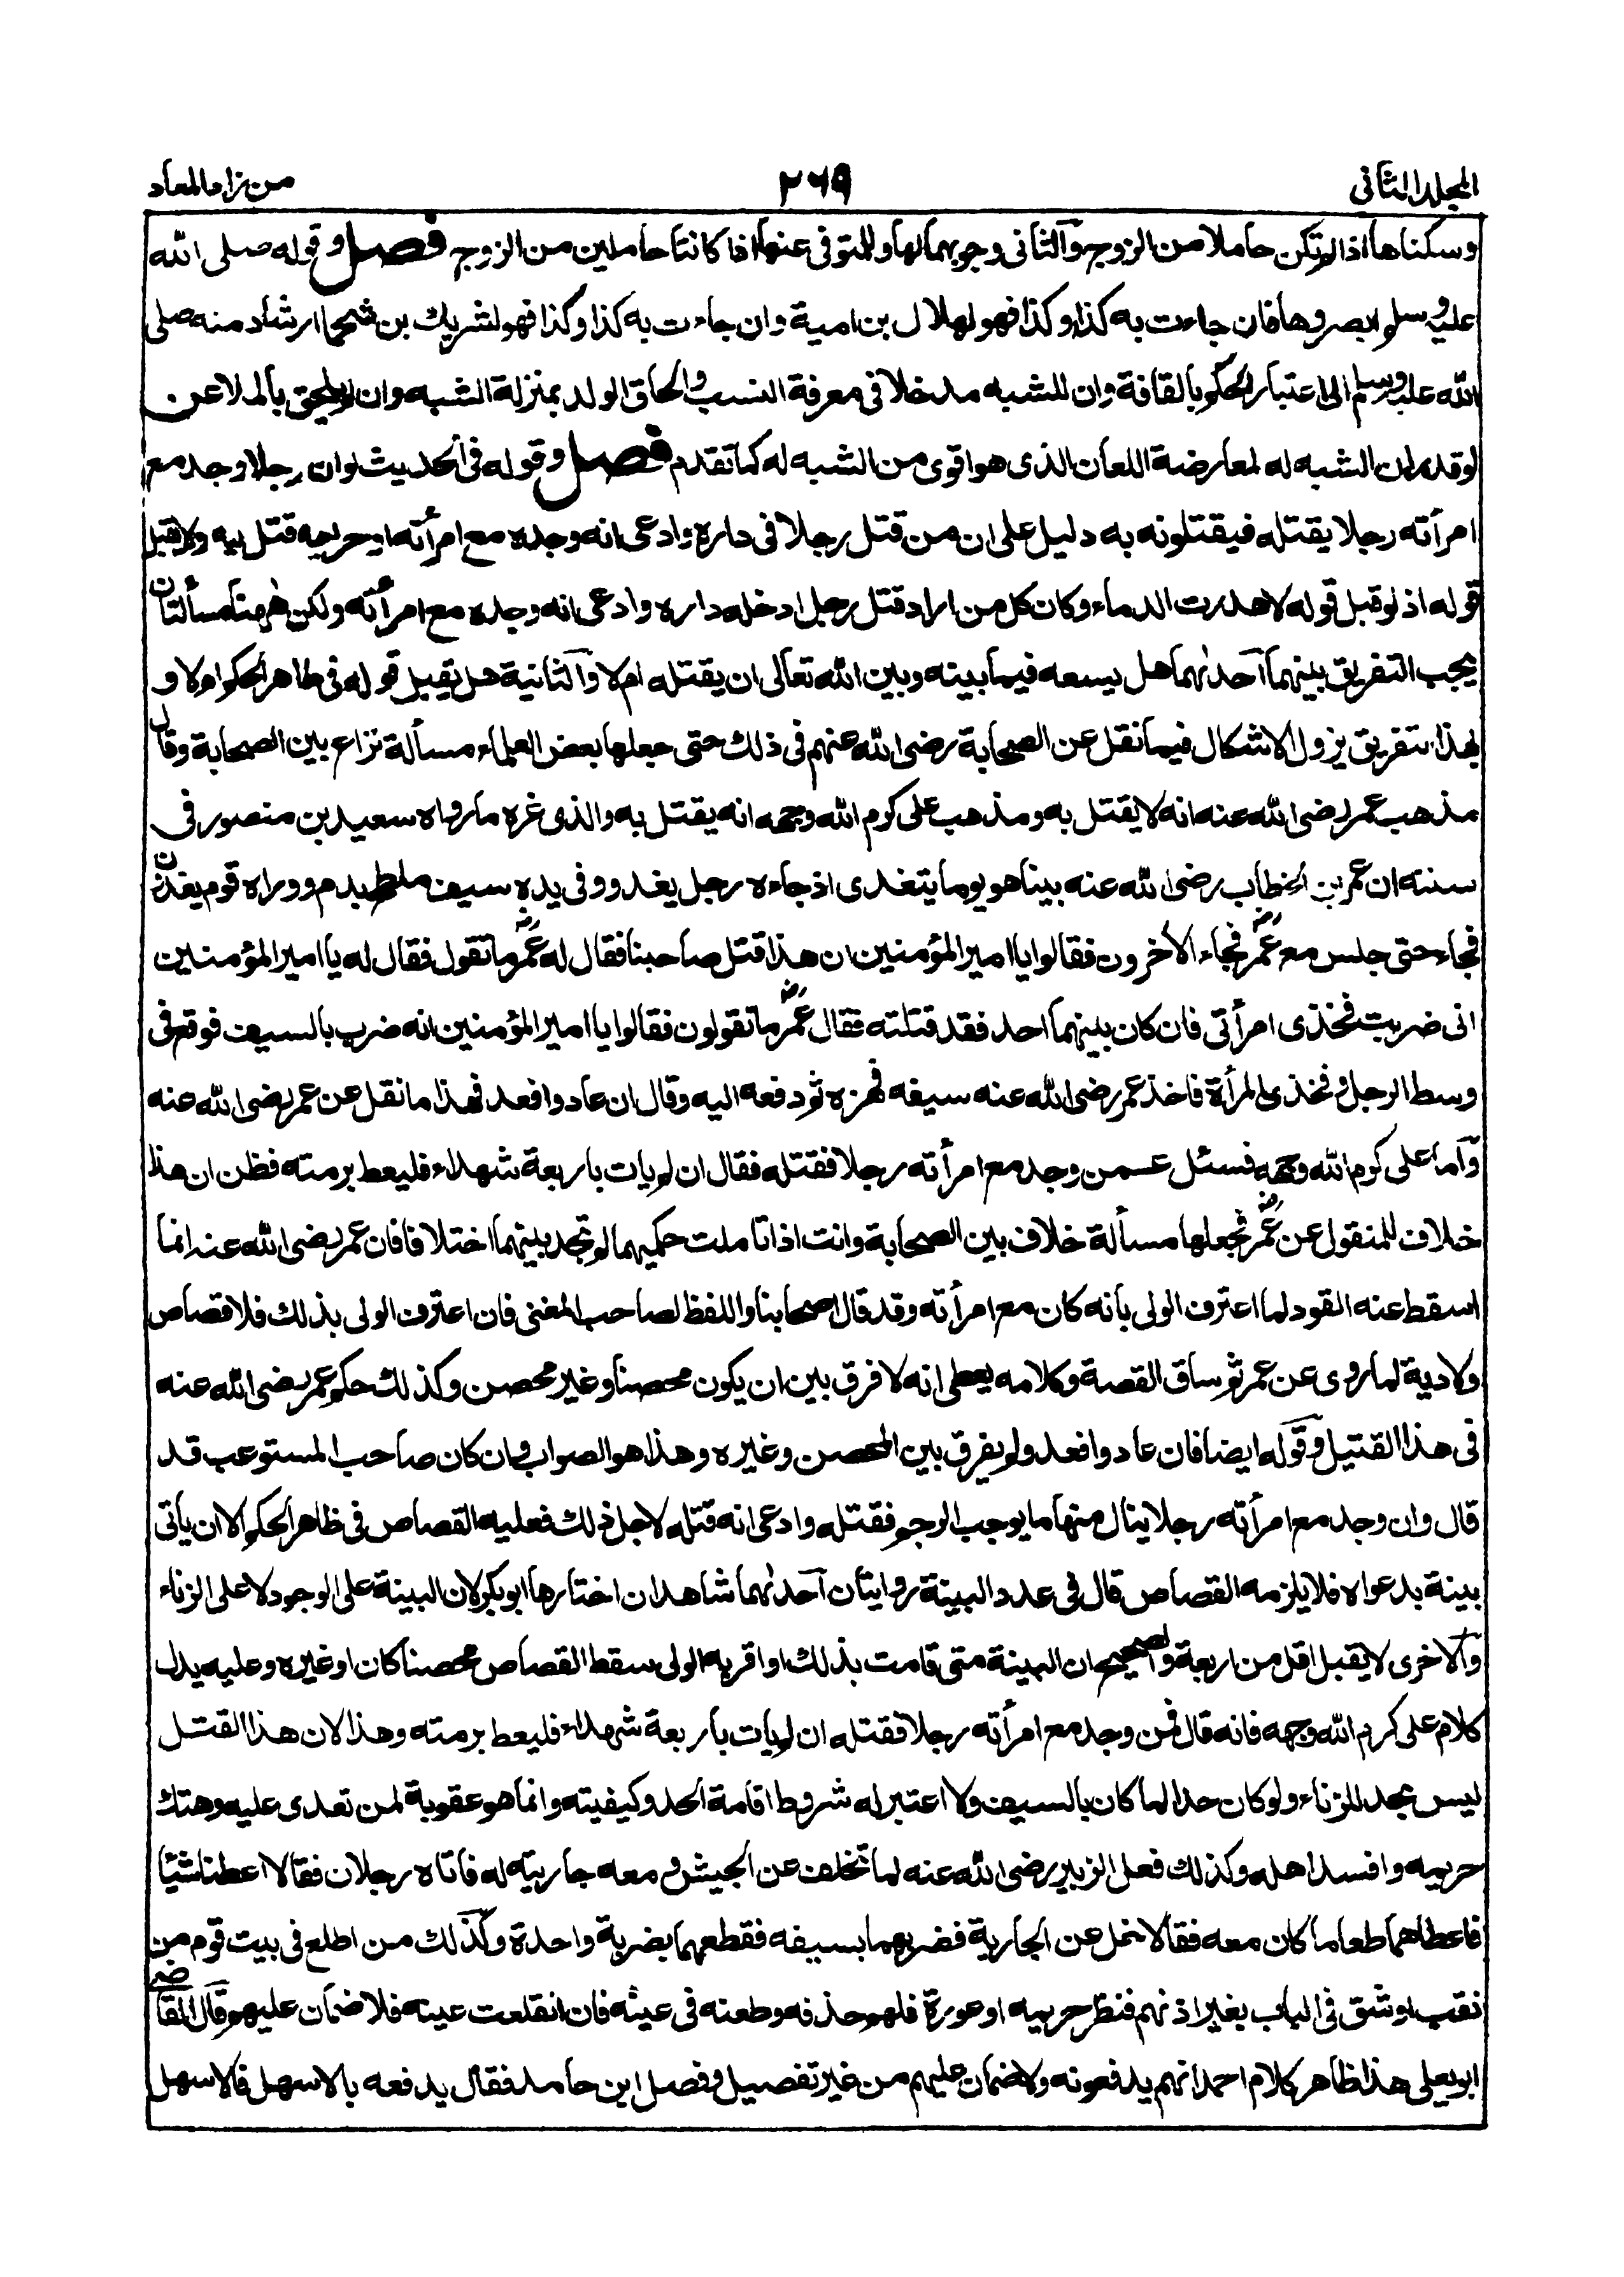 المجلد الثاني
٢٦٩
من زاد المعاد
وسكناها اذا لم تكن حاملا من الزوج والثانى وجوبهما لها وللمتوفى عنها اذا كانتا حاملين من الزوج فصل وقوله صلى الله
عليه وسلم ابصروها فان جاءت به كذا وكذا فهو لهلال بن امية وان جاءت به كذا وكذا فهو لشريك بن شحما ارشاد منه صلى
الله عليه وسلم الى اعتبار الحكم بالقافة وان للشبه مدخلا فى معرفة النسب والحاق الولد بمنزلة الشبه وان لم يلحق بالملاعن
لو قدر ان الشبه له لمعارضة اللعان الذى هو اقوى من الشبه له كما تقدم فصل وقوله فى الحديث لو ان رجلا وجد مع
امرأته رجلا يقتله فيقتلونه به دليل على ان من قتل رجلا فى داره وادعى انه وجده مع امرأته او حريمه قتل بيه ولا يقبل
قوله اذ لو قبل قوله لاهدرت الدماء وكان كل من اراد قتل رجل ادخله داره وادعى انه وجده مع امرأته ولكن ههنا مسألتان
يجب التفريق بينهما احدٰهما هل يسعه فيما بينه وبين الله تعالى ان يقتله ام لا والثانية هل يقبل قوله فى ظاهر الحكم ام لا و
بهذا التفريق يزول الاشكال فيما نقل عن الصحابة رضى الله عنهم فى ذلك حتى جعلها بعض العلماء مسألة نزاع بين الصحابة وقال
مذهب عمر رضى الله عنه انه لا يقتل به ومذهب على كرم الله وجهه انه يقتل به والذى غره ما رواه سعيد بن منصور فى
سننه ان عمر بن الخطاب رضى الله عنه بينا هو يوما يتغدى اذ جاءه رجل يغدو وفى يده سيف ملطخ بدم ووراه قوم يغدون
فجاء حتى جلس مع عمرؓ فجاء الأخرون فقالوا يا امير المؤمنين ان هذا قتل صاحبنا فقال له عمرؓ ما تقول فقال له يا امير المؤمنين
انى ضربت فخذى امرأتى فان كان بينهما احد فقد قتلته فقال عمرؓ ما تقولون فقالوا يا امير المؤمنين انه ضرب بالسيف فوقع فى
وسط الرجل وفخذى المرأة فاخذ عمر رضى الله عنه سيفه فهزه ثم دفعه اليه وقال ان عادوا فعد فهذا ما نقل عن عمر رضى الله عنه
واما على كرم الله وجهه فسئل عمن وجد مع امرأته رجلا فقتله فقال ان لم يات باربعة شهداء فليعط برمته فظن ان هذا
خلاف للمنقول عن عمرؓ فجعلها مسألة خلاف بين الصحابة وانت اذا تاملت حكميهما لم تجد بينهما اختلافا فان عمر رضى الله عنه انما
اسقط عنه القود لما اعترف الولى بانه كان مع امرأته وقد قال اصحابنا واللفظ لصاحب المغنى فان اعترف الولى بذلك فلا قصاص
ولا دية لما روى عن عمر ثم ساق القصة وكلامه يعطى انه لا فرق بين ان يكون محصنا وغير محصن وكذلك حكم عمر رضى الله عنه
فى هذا القتيل وقوله ايضا فان عادوا فعد ولم يفرق بين المحصن وغيره وهذا هو الصواب وان كان صاحب المستوعب قد
قال وان وجد مع امرأته رجلا ينال منها ما يوجب الرجم فقتله وادعى انه قتله لاجل ذلك فعليه القصاص فى ظاهر الحكم الا ان ياتى
ببينة بدعواه فلا يلزمه القصاص قال فى عدد البينة روايتان احدٰهما شاهدان اختارها ابو بكر لان البينة على الوجود لا على الزناء
والاخرى لا يقبل اقل من اربعة والصحيح ان البينة متى قامت بذلك او اقر به الولى سقط القصاص محصنا كان او غيره وعليه يدل
كلام على كرم الله وجهه فانه قال فمن وجد مع امرأته رجلا فقتله ان لم يات باربعة شهداء فليعط برمته وهذا لان هذا القتل
ليس بحد للزناء ولو كان حدا لما كان بالسيف ولا اعتبر له شروط اقامة الحد وكيفيته وانما هو عقوبة لمن تعدى عليه وهتك
حريمه وافسد اهله وكذلك فعل الزبير رضى الله عنه لما تخلف عن الجيش ومعه جاريته له فاتاه رجلان فقالا اعطنا شيئا
فاعطاهما طعاما كان معه فقالا خل عن الجارية فضربهما بسيفه فقطعهما بضربة واحدة وكذلك من اطلع فى بيت قوم من
نقب او شق فى الباب بغير اذنهم فنظر حريمه او عورة فلهم حذفه وطعنه فى عينه فان انقلعت عينه فلا ضمان عليهم وقال القاضى
ابو يعلى هذا ظاهر كلام احمد انهم يدفعونه ولا ضمان عليهم من غير تفصيل وفصل ابن حامد فقال يدفعه بالاسهل فالاسهل